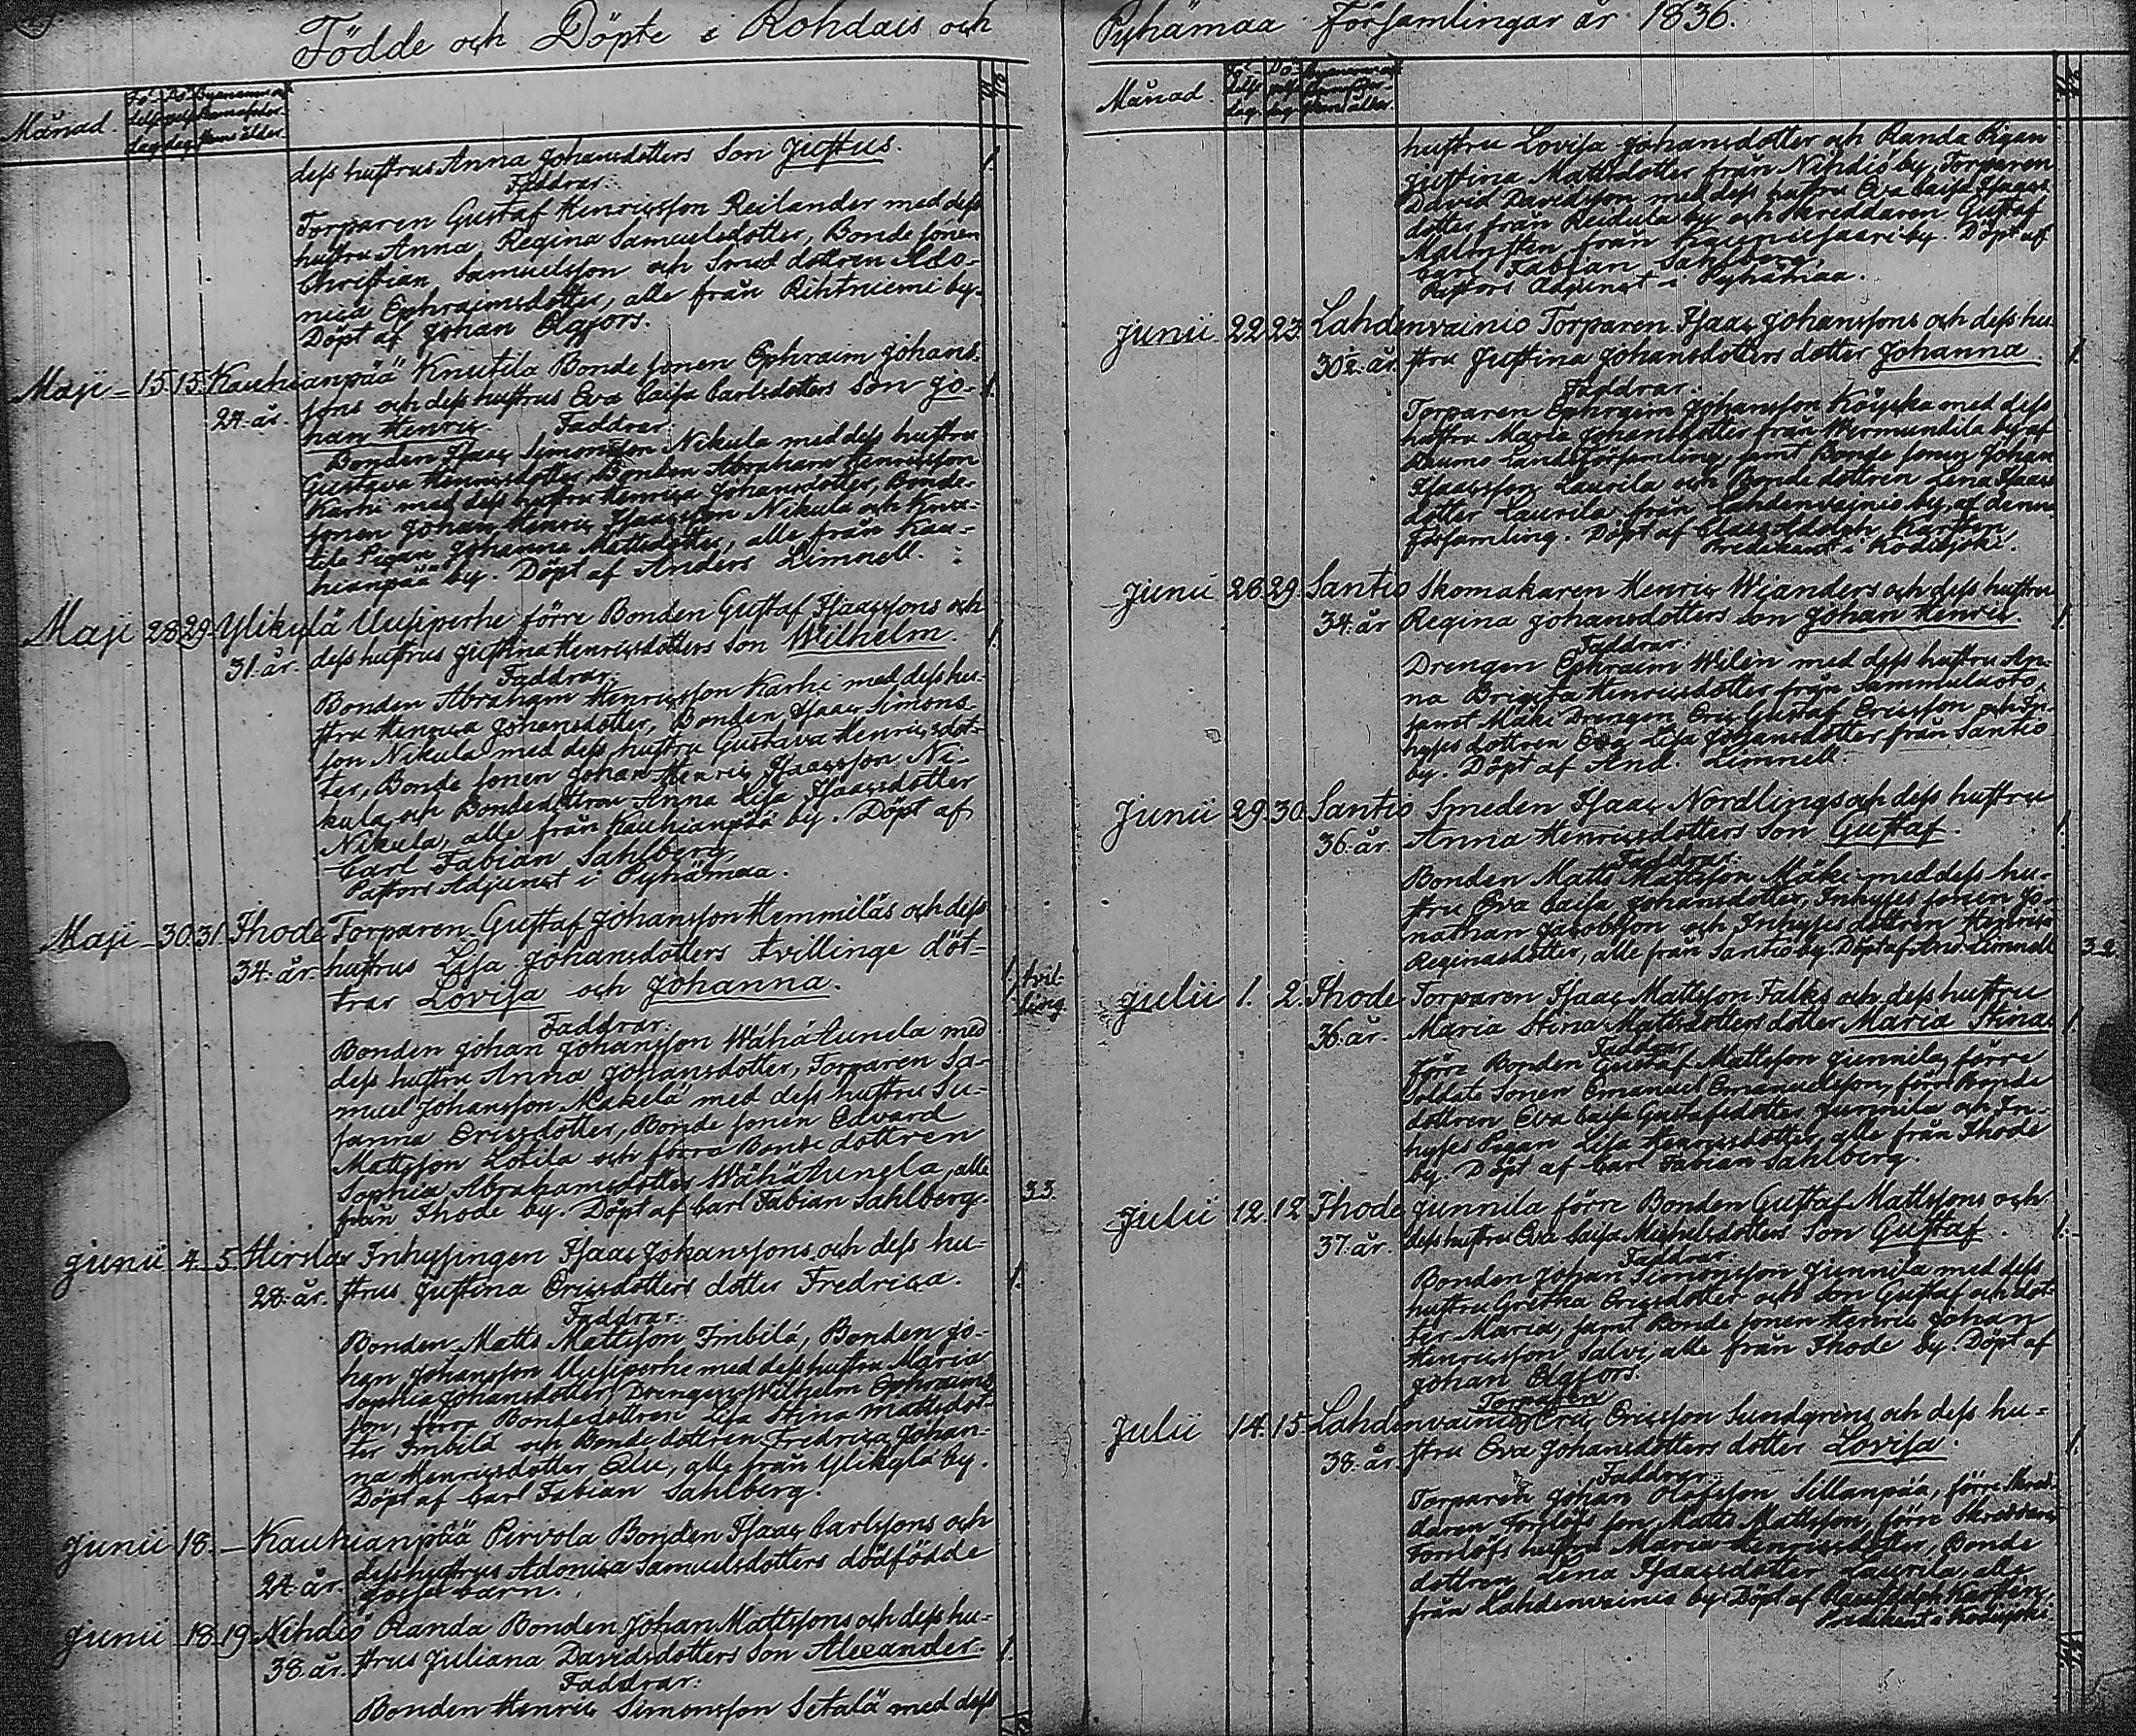 Födde och Döpte i Rohdais och
Månad.
dess hustrus Anna Johansdotters Son Justus.
1.
Faddrar:
Torparen Gustaf Henricsson Reilander med dess
hustru Anna Regina Samuelsdotter, Bonde sonen
Christian Samuelsson och Smed dottren Ado-
nica Ephraimsdotter, alle från Rihtniemi by.
Döpt af Johan Elgfors.
Maji - 15. 15. Kauhianpää Knutila Bonde sonen Ephraim Johans-
24. år. sons och dess hustrus Eva Caisa Carlsdotters Son Jo- 1.
han Henric. Faddrar:
Bonden Isaac Simonsson Nikula med dess hustru
Gustava Henricsdotter, Bonden Abraham Henricsson
Karhi med dess hustru Henrica Johansdotter, Bonde-
sonen Johan Henric Isaacsson Nikula och Knu-
tila Pigan Johanna Mattsdotter, alle från Kau-
hianpää by. Döpt af Anders Limnell.
Maji 28. 29. Ylikylä Uusiperhe förre Bonden Gustaf Isaacssons och
31. år. dess hustrus Justina Henricsdotters Son Wilhelm. 1.
Faddrar:
Bonden Abraham Henricsson Karhi med dess hu-
stru Henrica Johansdotter, Bonden Isaac Simons-
son Nikula med dess hustru Gustava Henricsdot-
ter, Bonde sonen Johan Henric Isaacsson Ni-
kula och Bondedottren Anna Lisa Isaacsdotter
Nikula, alle från Kauhianpää by. Döpt af
Carl Fabian Sahlberg,
Pastors Adjunct i Pyhämaa.
Maji - 30. 31. Ihode Torparen Gustaf Johansson Hemmiläs och dess
34. år hustrus Lisa Johansdotters tvillinge döt-
trar Lovisa och Johanna. 1. 1. tvil-
ling
Faddrar:
Bonden Johan Johansson Wähätunela med
dess hustru Anna Johansdotter, Torparen Sa-
muel Johansson Mäkelä med dess hustru Su-
sanna Ericsdotter, Bonde sonen Edvard
Mattsson Lotila och förra Bonde dottren
Sophia Abrahamsdotter Wähätunela, alle
från Ihode by. Döpt af Carl Fabian Sahlberg.
33.
Junii 4. 5. Hirslax Inhysingen Isaac Johanssons och dess hu-
28. år. strus Justina Ericsdotters dotter Fredrica. 1.
Faddrar:
Bonden Matts Mattsson Imbilä, Bonden Jo-
han Johansson Uusiperhe med dess hustru Maria
Sophia Johansdotter, Drengen Wilhelm Ephraims-
son, förre Bondedottren Lisa Stina Mattsdot-
ter Imbilä och Bonde dottren Fredrica Johan-
na Henricsdotter, alle från Ylikylä by.
Döpt af Carl Fabian Sahlberg.
Junii 18. - Kauhianpää Pirvola Bonden Isaac Carlssons och
24. år. dess hustrus Adonica Samuelsdotters dödfödde
gosse barn.
Junii 18. 19. Nihdiö Randa Bonden Johan Mattssons och dess hu-
38. år. strus Juliana Davidsdotters Son Alexander. 1.
Faddrar:
Bonden Henric Simonsson Setalä med dess
Pyhämaa Församlingar år 1836.
Månad.
hustru Lovisa Johansdotter och Randa Pigan
Justina Mattsdotter från Nihdiö by, Torparen
David Davidsson med dess hustru Eva Caisa Isaacs-
dotter från Reidula by och Skreddaren Gustaf
Malmsten från Kaunisaari by. Döpt af
Carl Fabian Sahlberg,
Pastors Adjunct i Pyhämaa.
Junii 22. 23. Lahdenvainio Torparen Isaac Johanssons och dess hu-
30½. år. stru Justina Johansdotters dotter Johanna. 1.
Faddrar:
Torparen Ephraim Johansson Köyskä med dess
hustru Maria Johansdotter från Wermundila by af
Raumo Lands Församling, samt Bonde sonen Johan
Isaacsson Laurila och Bonde dottren Lena Isaacs-
dotter Laurila från Lahdenvainio by, af denna
Församling. Döpt af Claes Adolph Karsten,
Predikant i Kodisjoki.
Junii 26. 29. Santio Skomakaren Henric Wianders och dess hustru
34. år Regina Johansdotters Son Johan Henric. 1.
Faddrar:
Drengen Ephraim Wilén med dess hustru An-
na Brigitta Henricsdotter från Sammulasto,
samt Mäki Drengen Eric Gustaf Ericsson och In-
hyses dottren Eva Lisa Johansdotter från Santio
by. Döpt af And. Limnell.
Junii 29. 30. Santio Smeden Isaac Nordlings och dess hustru
36. år. Anna Henricsdotters Son Gustaf. 1.
Faddrar:
Bonden Matts Mattsson Mäki med dess hu-
stru Eva Caisa Johansdotter, Inhyses sonen Jo-
nathan Jacobsson och Inhyses dottren Henrica
Reginasdotter, alle från Santio by. Döpt af And. Limnell.
32
Julii 1. 2. Ihode Torparen Isaac Mattsson Falks och dess hustru
36. år. Maria Stina Mattsdotters dotter Maria Stina. 1.
Faddrar:
Förre Bonden Gustaf Mattsson Junnila, förre
Soldats Sonen Emanuel Emanuelsson, förre Bonde
dottren Eva Caisa Gustafsdotter Junnila och In-
hyses Pigan Lisa Henricsdotter, alle från Ihode
by. Döpt af Carl Fabian Sahlberg.
Julii 12. 12. Ihode Junnila förre Bonden Gustaf Mattssons och
37. år. dess hustru Eva Caisa Michelsdotters Son Gustaf. 1.
Faddrar:
Bonden Johan Simonsson Junnila med dess
hustru Gretha Ericsdotter och Son Gustaf och dot-
ter Maria, samt Bonde sonen Henric Johan
Henricsson Salvi, alle från Ihode by. Döpt af
Johan Elgfors.
Torparen
Julii 14. 15. Lahdenvainio Eric Ericsson Sundgréns och dess hu-
38. år. stru Eva Johansdotters dotter Lovisa. 1.
Faddrar:
Torparen Johan Olofsson Sillanpää, förre Skred-
daren Forslöfs son Matts Mattsson, förre Skreddaren
Forslöfs hustru Maria Henricsdotter, Bonde
dottren Lena Isaacsdotter Laurila, alle
från Lahdenvainio by. Döpt af Claes Adolph Karsten,
Predikant i Kodisjoki